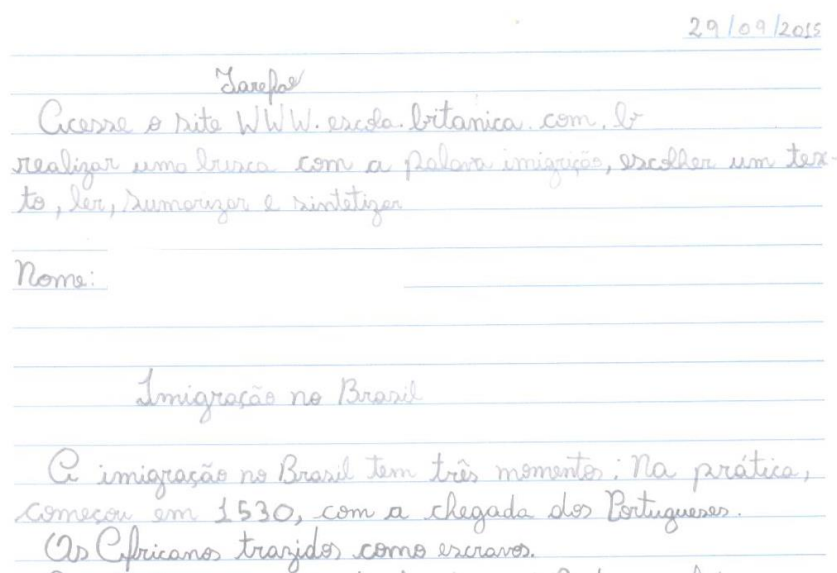 29/09/2015
Tarefa
Acesse o site WWW.escola.britanica.com.br
realizar uma busca com a palavra imigração, escolher um tex-
to, ler, sumerizar e sintetizar
Nome:
Imigração no Brasil
A imigração no Brasil tem três momentos: Na prática,
começou em 1530, com a chegada dos Portugueses.
Os Africanos trazidos como escravos.